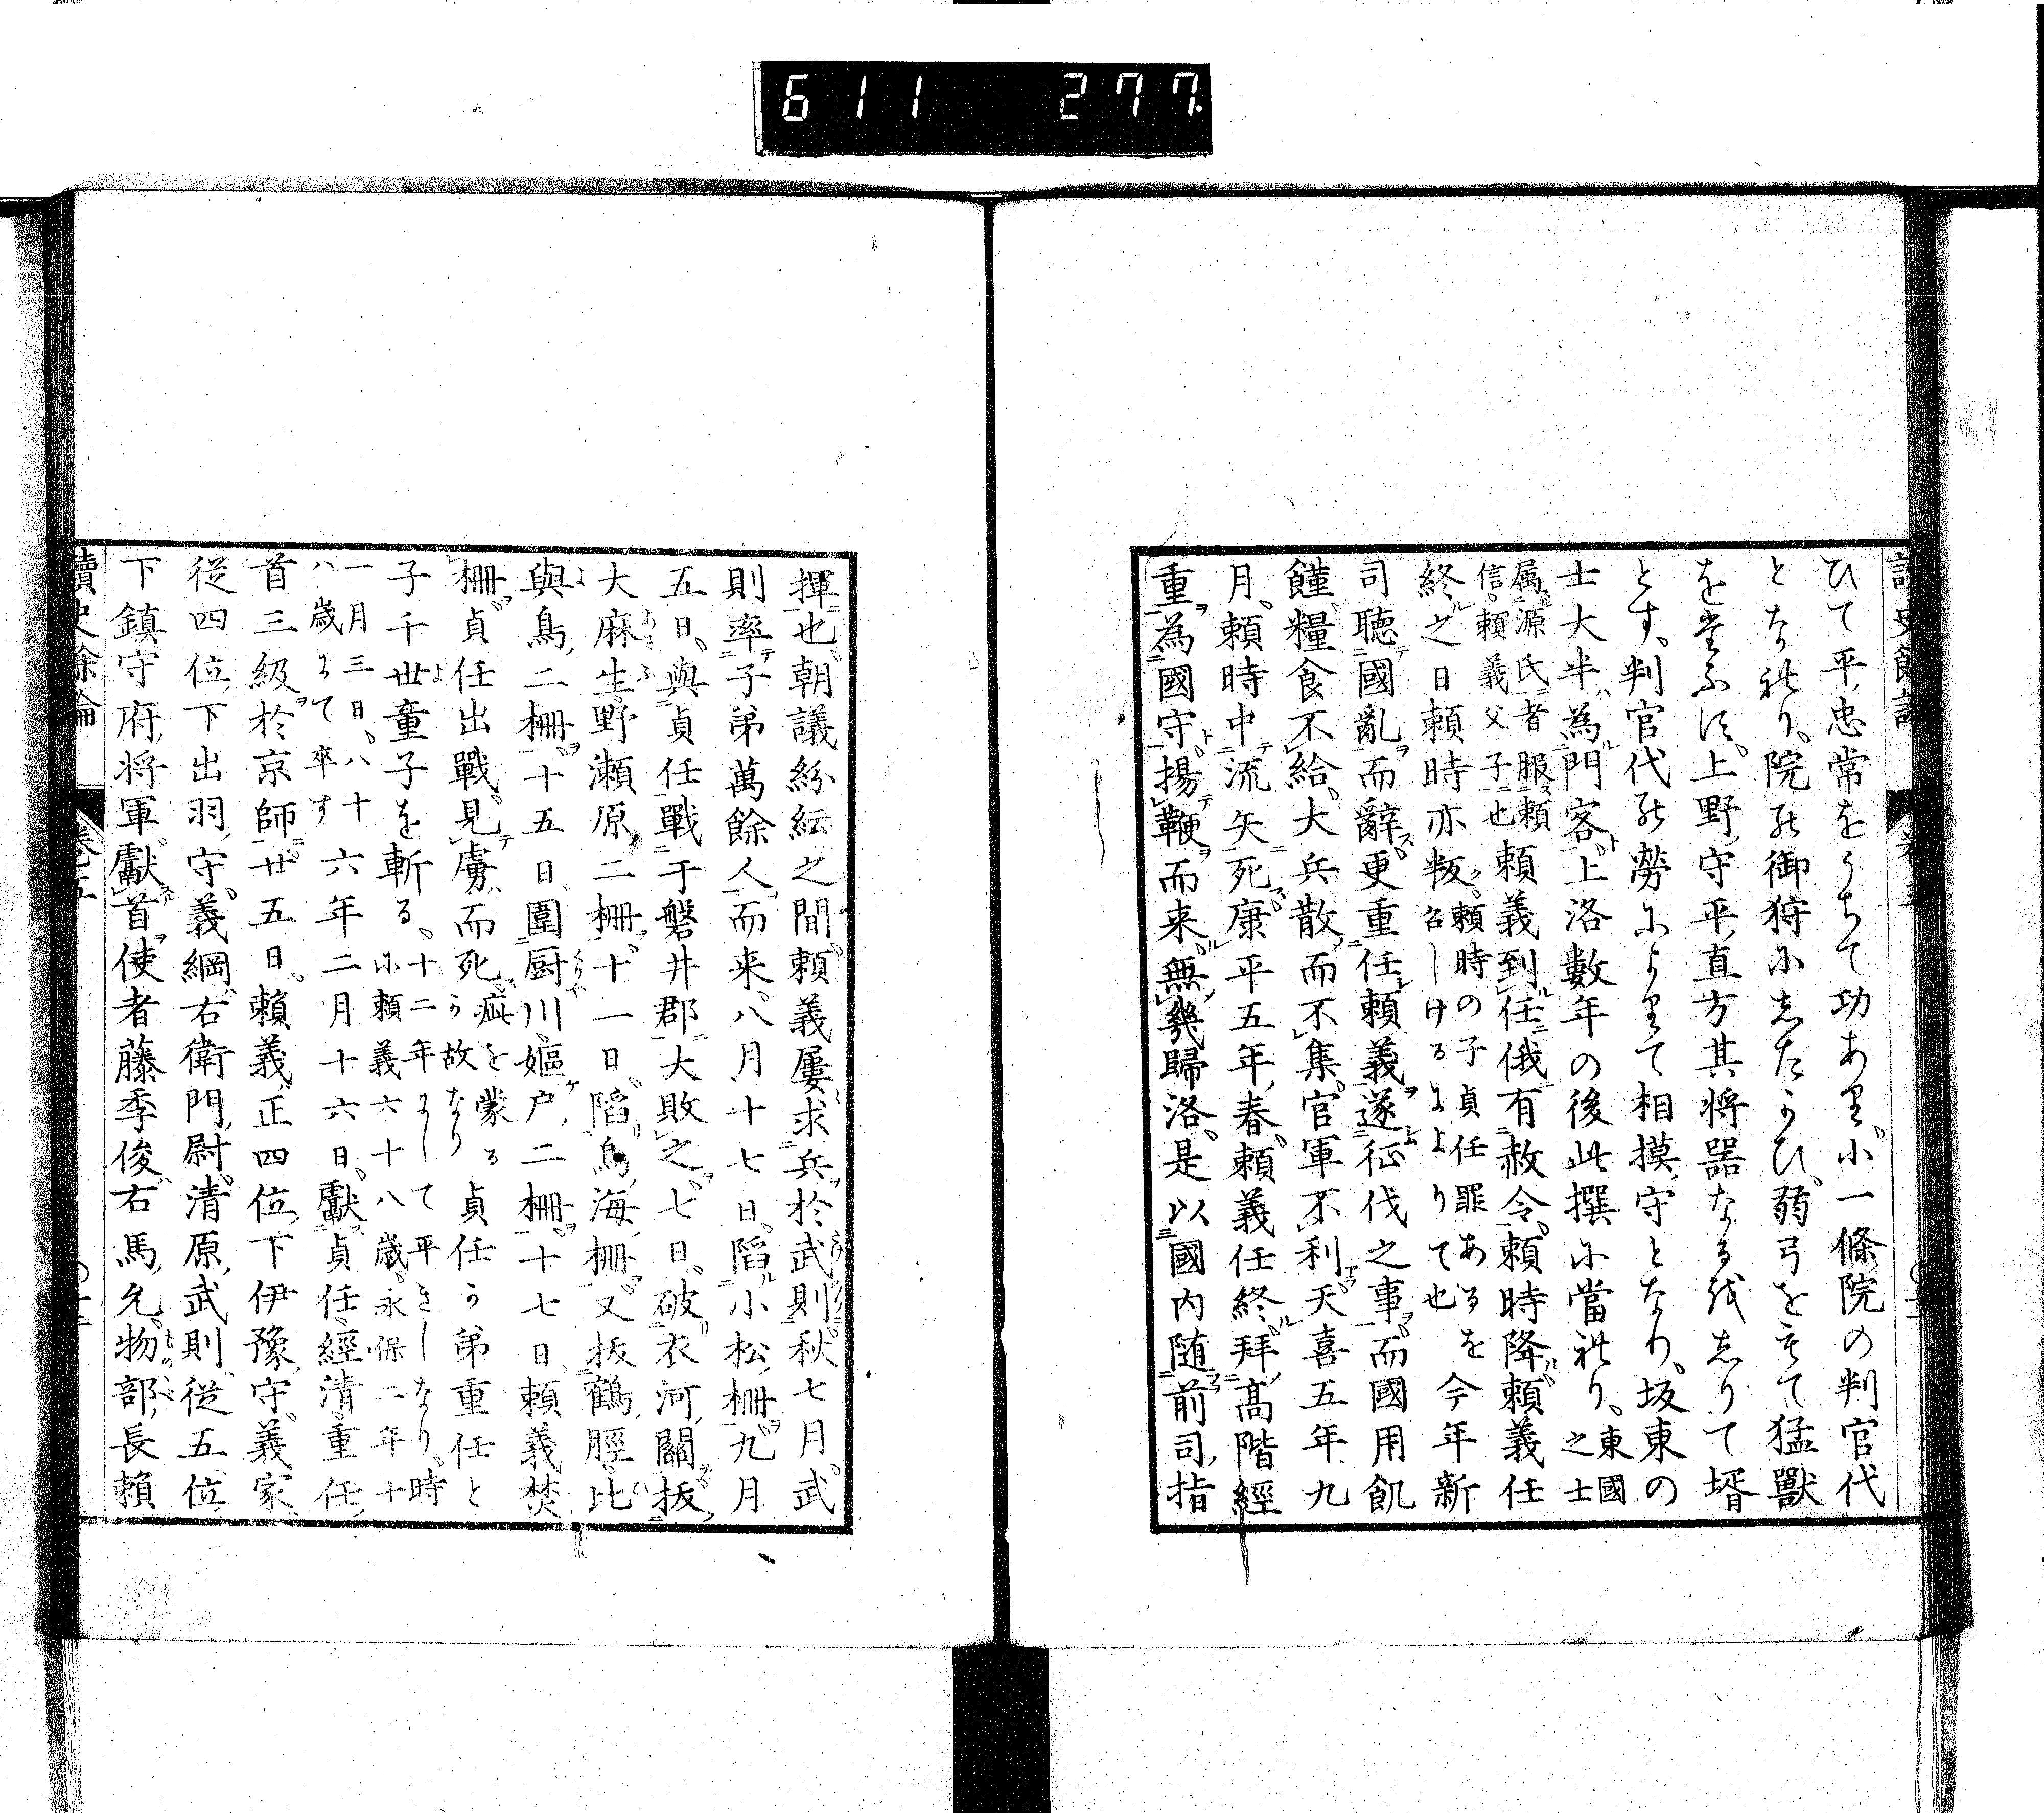 611 277
ひて平忠常をうちて功あり小一條院の判官代
となれり院の御狩にしたかひ弱弓をもて猛獸
をたふす上野守平直方其将器なるをしりて壻
とす判官代の勞によりて相摸守となり坂東の
士大半為門客上洛數年の後此撰に當れり東國之士
属源氏者服頼信頼義父子也頼義到任俄有赦令頼時降頼義任
終之日頼時亦叛頼時の子貞任罪あるを召しけるによりて也今年新
司聴國亂而辭更重任頼義遂征伐之事而國用飢
饉糧食不給大兵散而不集官軍不利天喜五年九
月頼時中流矢死康平五年春頼義任終拜髙階經
重為國守揚鞭而来無幾歸洛是以國内随前司指
揮也朝議紛紜之間頼義屢求兵於武則秋七月武
則率子弟萬餘人而来八月十七日陷小松柵九月
五日與貞任戰于磐井郡大敗之七日破衣河關抜
大麻生野瀬原二柵十一日陷鳥海柵又抜鶴脛比
與鳥二柵十五日圍厨川嫗户二柵十七日頼義焚
柵貞任出戰見虜而死疵を蒙るか故なり貞任か弟重任と
子千世童子を斬る十二年にして平きしなり時に頼義六十八歳永保二年十
一月三日八十八歳にて卒す六年二月十六日獻貞任經清重任
首三級於京師廿五日頼義正四位下伊豫守義家
従四位下出羽守義綱右衛門尉清原武則従五位
下鎮守府将軍獻首使者藤季俊右馬允物部長頼
讀史餘論 卷五